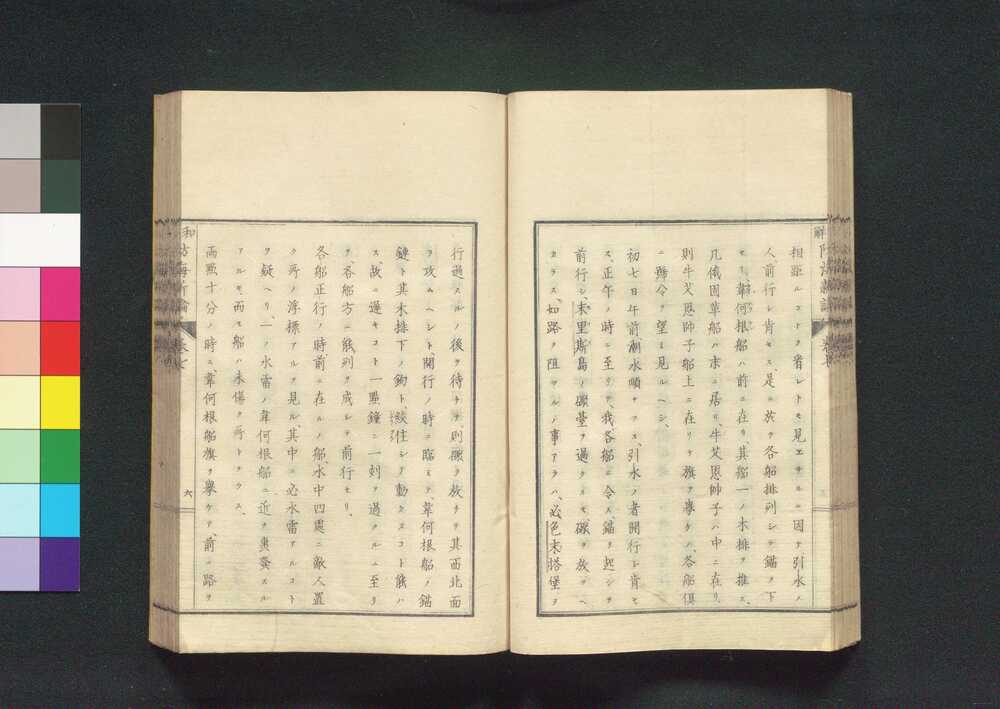 相距ルコトヲ省レトモ見エサルニ因テ引水ノ
人前行シ肯セス是ニ於テ各船排列シテ錨ヲ下
セリ、韋何根船ハ前ニ在リ、其船一ノ木排ヲ推ス、
凡俄固華船ハ末ニ居リ、牛艾恩帥子ハ中ニ在リ、
則牛艾恩帥子船上ニ在リ旗ヲ擧ケハ、各船倶
ニ號令ヲ望ミ見ルヘシ、
初七日午前潮水順ナラス、引水ノ者開行ヲ肯セ
ス、正午ノ時ニ至リテ、我各船ニ令ス、錨ヲ起シテ
前行シ、末里斯島ノ礮臺ヲ過クルモ礮ヲ放ツヘ
カラス、如路ヲ阻マルノ事アラハ、必色末塔堡ヲ
行過スルノ後ヲ待チテ、則礮ヲ放チテ其西北面
ヲ攻ムヘシト開行ノ時ニ臨ミテ韋何根船ノ錨
鏈ト其木排下ノ鉤ト絞住シテ動クスコト能ハ
ス、故ニ遲キコト一點鐘ニ一刻ヲ過クルニ至リ
テ、各船方ニ能列ヲ成シテ前行セリ、
各船正行ノ時前ニ在ルノ船、水中四處ニ敵人置
ク所ノ浮標アルヲ見ル、其中ニ必水雷アルコト
ヲ疑ヘリ、一ノ水雷ノ韋何根船ニ近テ轟發スル
アルモ、而モ船ハ未傷ク所トナラス、
兩點十分ノ時ニ、韋何根船旗ヲ擧ケテ、前ノ路ヲ
六